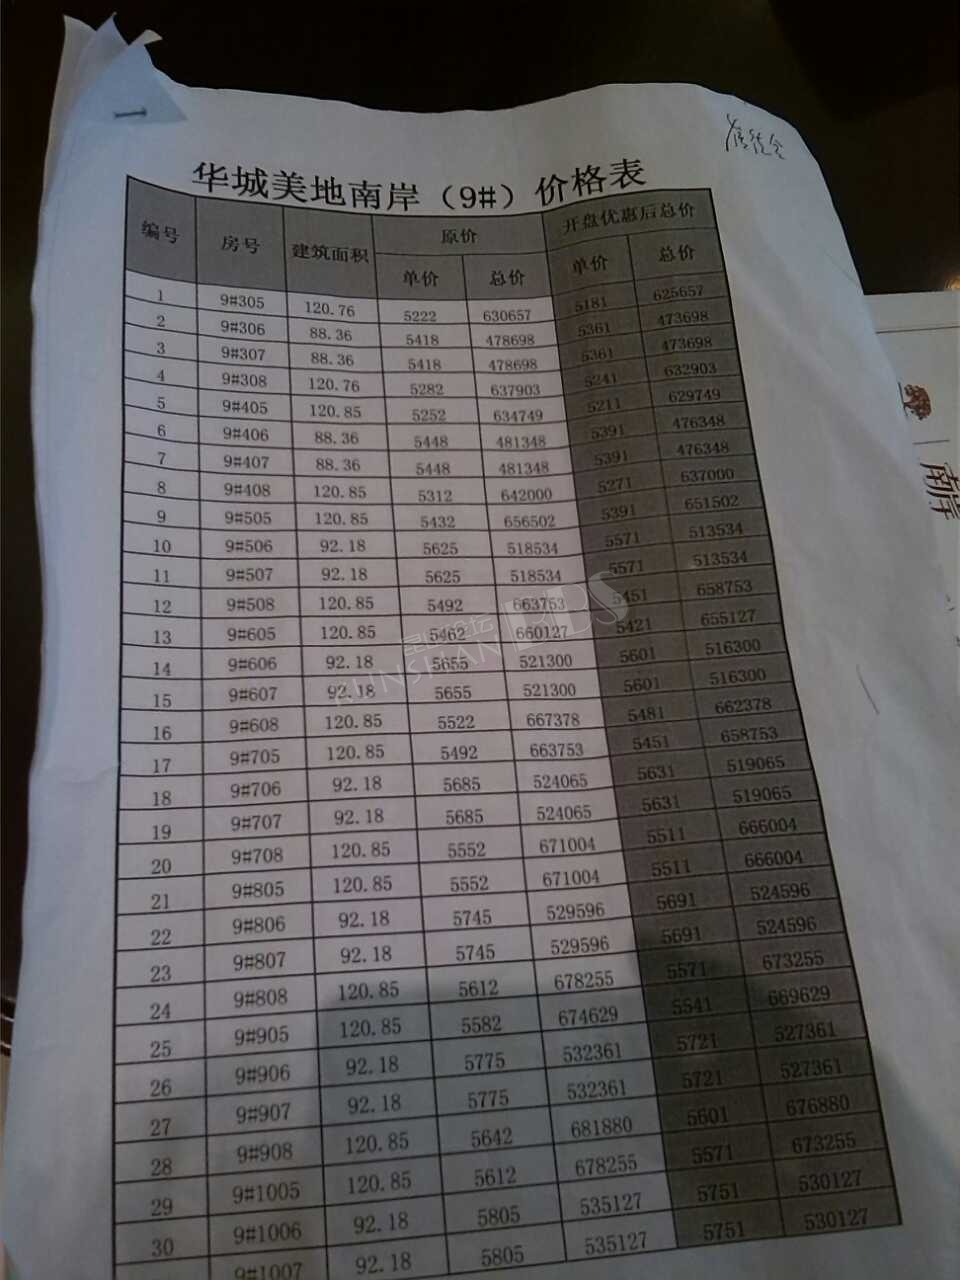 华城美地南岸（9#）价格表
编号 房号 建筑面积 原价 开盘优惠后总价
单价 总价 单价 总价
1 9#305 120.76 5222 630657 5181 625657
2 9#306 88.36 5418 478698 5361 473698
3 9#307 88.36 5418 478698 5361 473698
4 9#308 120.76 5282 637903 5241 632903
5 9#405 120.85 5252 634749 5211 629749
6 9#406 88.36 5448 481348 5391 476348
7 9#407 88.36 5448 481348 5391 476348
8 9#408 120.85 5312 642000 5271 637000
9 9#505 120.85 5432 656502 5391 651502
10 9#506 92.18 5625 518534 5571 513534
11 9#507 92.18 5625 518534 5571 513534
12 9#508 120.85 5492 663753 5451 658753
13 9#605 120.85 5462 660127 5421 655127
14 9#606 92.18 5655 521300 5601 516300
15 9#607 92.18 5655 521300 5601 516300
16 9#608 120.85 5522 667378 5481 662378
17 9#705 120.85 5492 663753 5451 658753
18 9#706 92.18 5685 524065 5631 519065
19 9#707 92.18 5685 524065 5631 519065
20 9#708 120.85 5552 671004 5511 666004
21 9#805 120.85 5552 671004 5511 666004
22 9#806 92.18 5745 529596 5691 524596
23 9#807 92.18 5745 529596 5691 524596
24 9#808 120.85 5612 678255 5571 673255
25 9#905 120.85 5582 674629 5541 669629
26 9#906 92.18 5775 532361 5721 527361
27 9#907 92.18 5775 532361 5721 527361
28 9#908 120.85 5642 681880 5601 676880
29 9#1005 120.85 5612 678255 5571 673255
30 9#1006 92.18 5805 535127 5751 530127
9#1007 92.18 5805 535127 5751 530127
南岸
KUNSHAN BBS